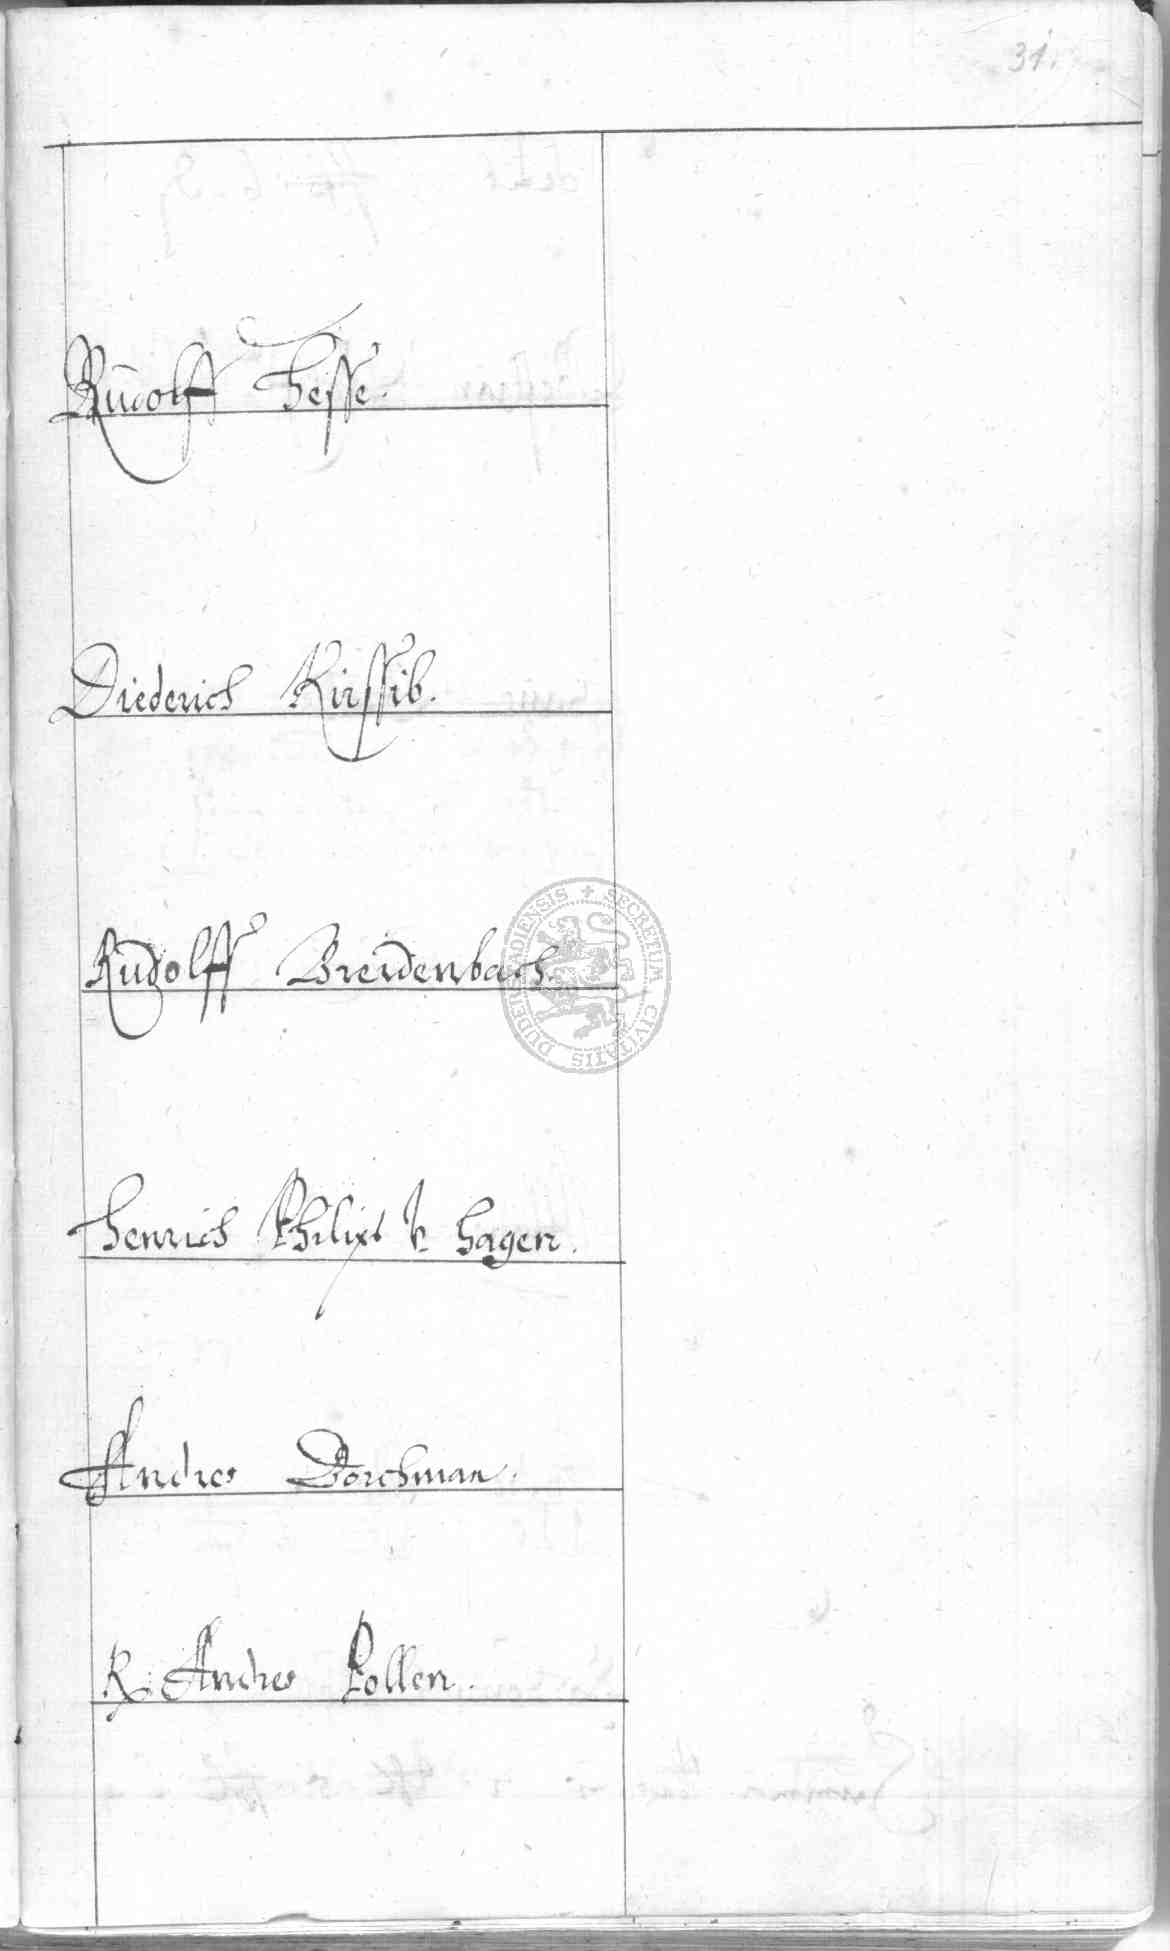 31.
Rudolff Hesse.
Diederich Kirssib.
Rudolff Breidenbach.
Henrich Philips v Hagen.
Andres Borchman.
R. Andres Pollen.
SECRETUM CIVITATIS DUDERSTADIENSIS